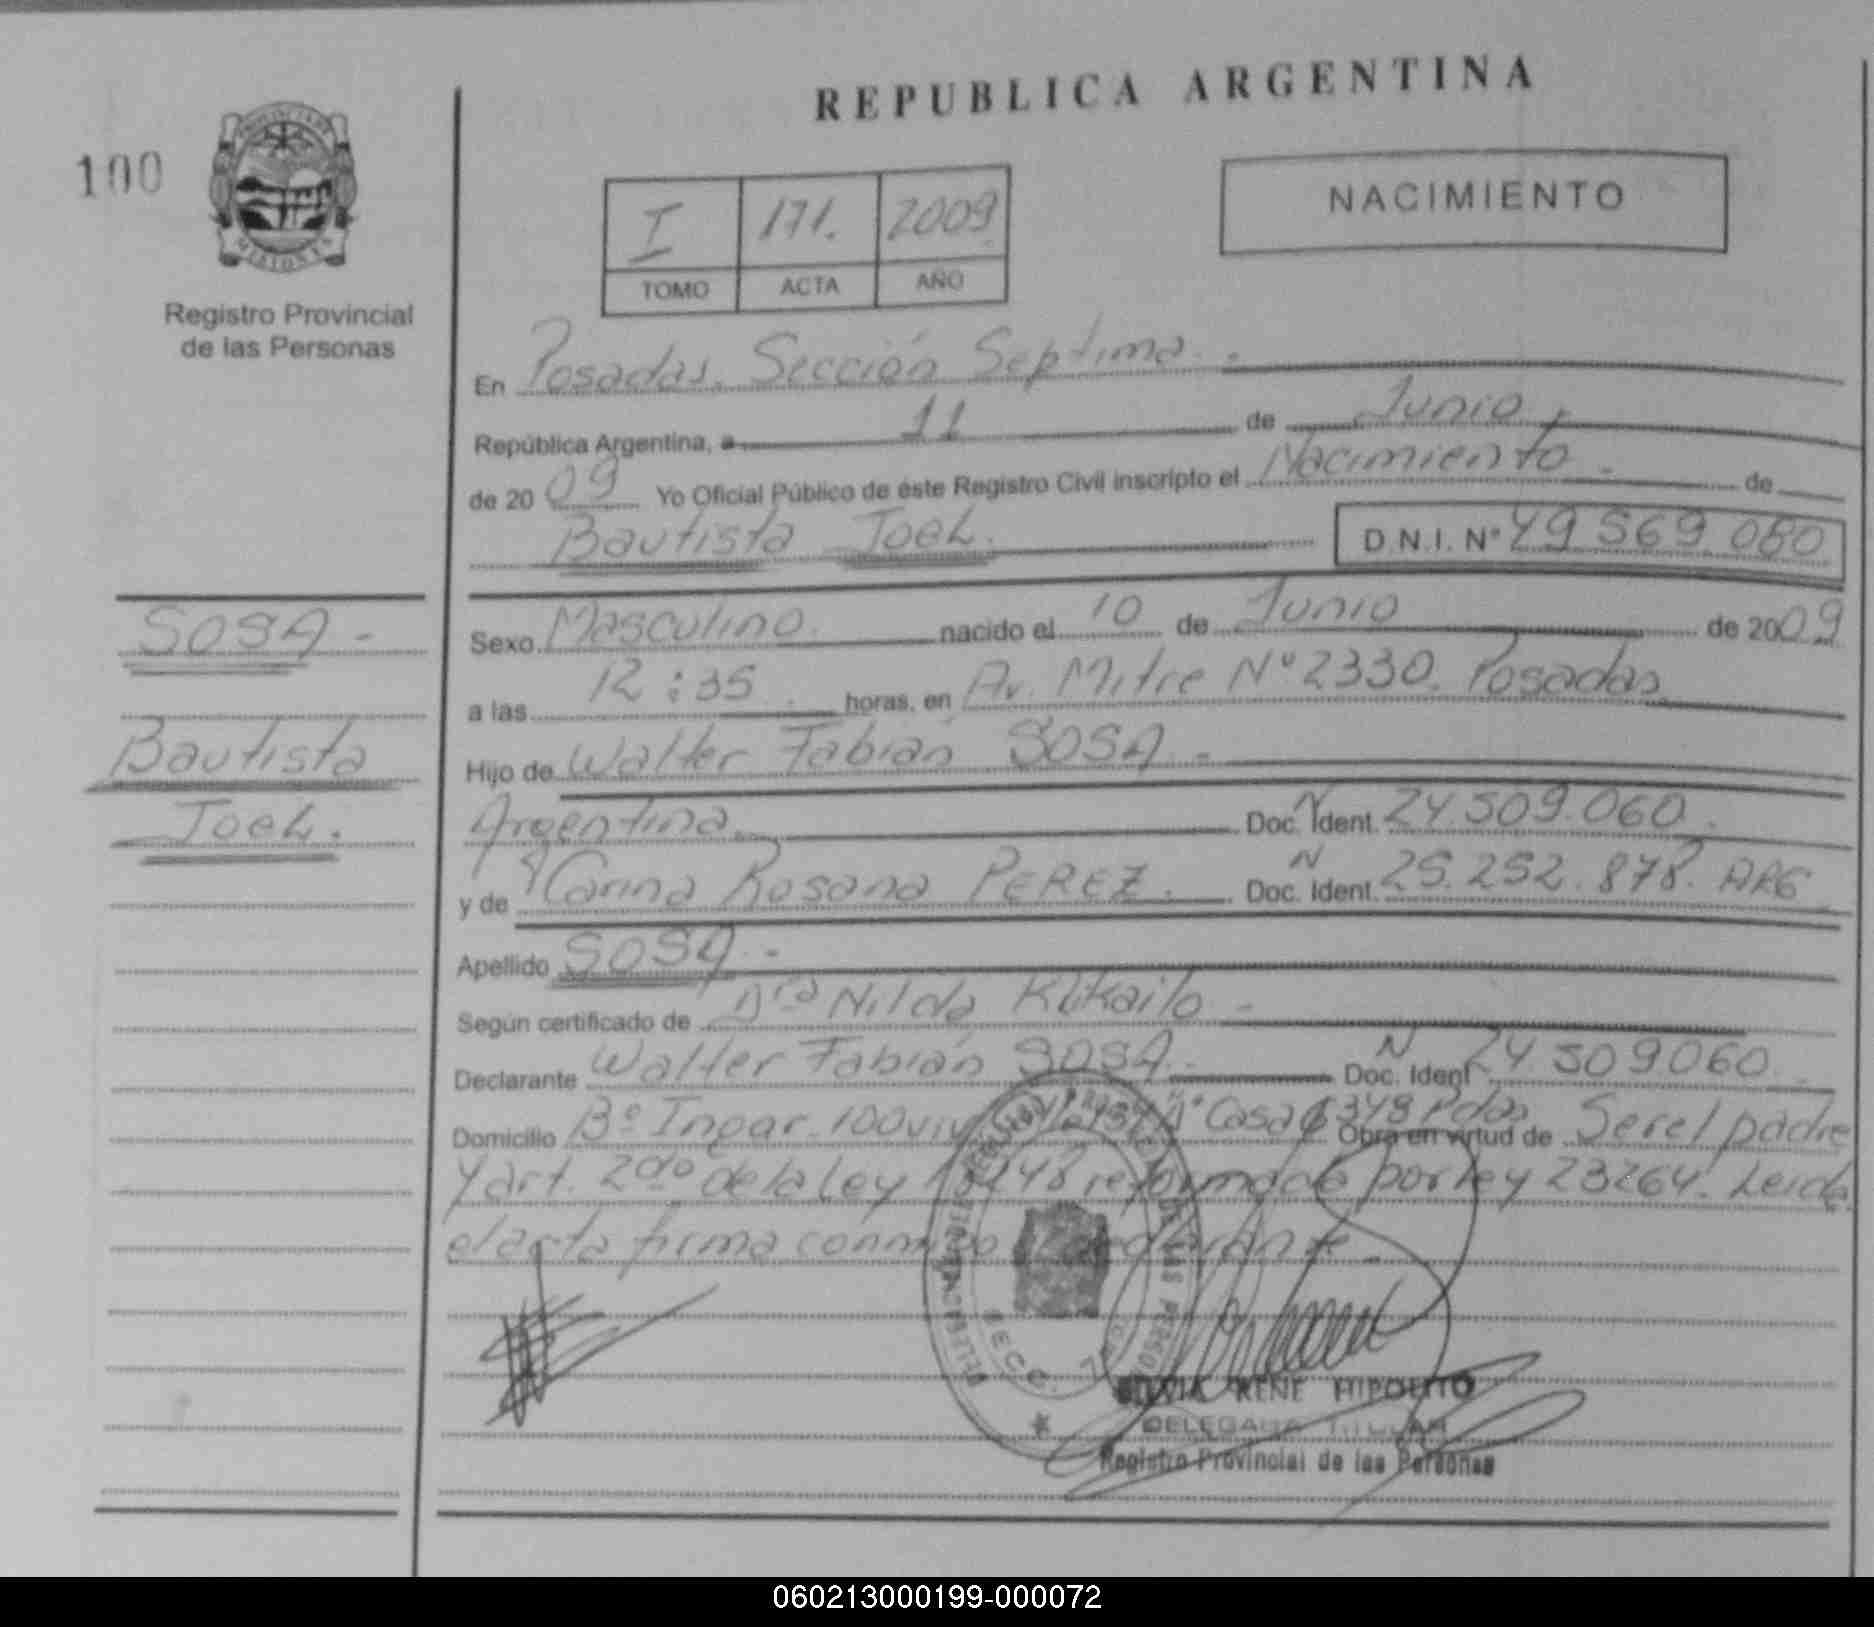 REPUBLICA ARGENTINA
100
PROVINCIA DE
MISIONES
Registro Provincial
de las Personas
I 171. 2009
TOMO ACTA AÑO
NACIMIENTO
En Posadas. Sección Septima.
República Argentina, a 11 de Junio,
de 2009 Yo Oficial Público de éste Registro Civil inscripto el Nacimiento. de
Bautista Joel. D.N.I. Nº 49 569 080
SOSA -
Bautista
Joel.
Sexo Masculino. nacido el 10 de Junio de 2009
a las 12:35 horas, en Av. Mitre Nº 2330. Posadas
Hijo de Walter Fabián SOSA -
Argentina. Doc. Ident. N 24.509.060.
y de Carina Rosana PEREZ. Doc. Ident. N 25.252.878. ARG
Apellido SOSA -
Según certificado de Dra Nilda -
Declarante Walter Fabián SOSA. Doc. Ident N 24.509060.
Domicilio Bº 100 viv Casa Pdas Obra en virtud de Ser el padre
y art. 2do de la ley reformada por ley 23264. Leída
el acta firma conmigo el declarante.
SECC. 7
SILVIA RENE HIPOLITO
DELEGADA TITULAR
Registro Provincial de las Personas
060213000199-000072